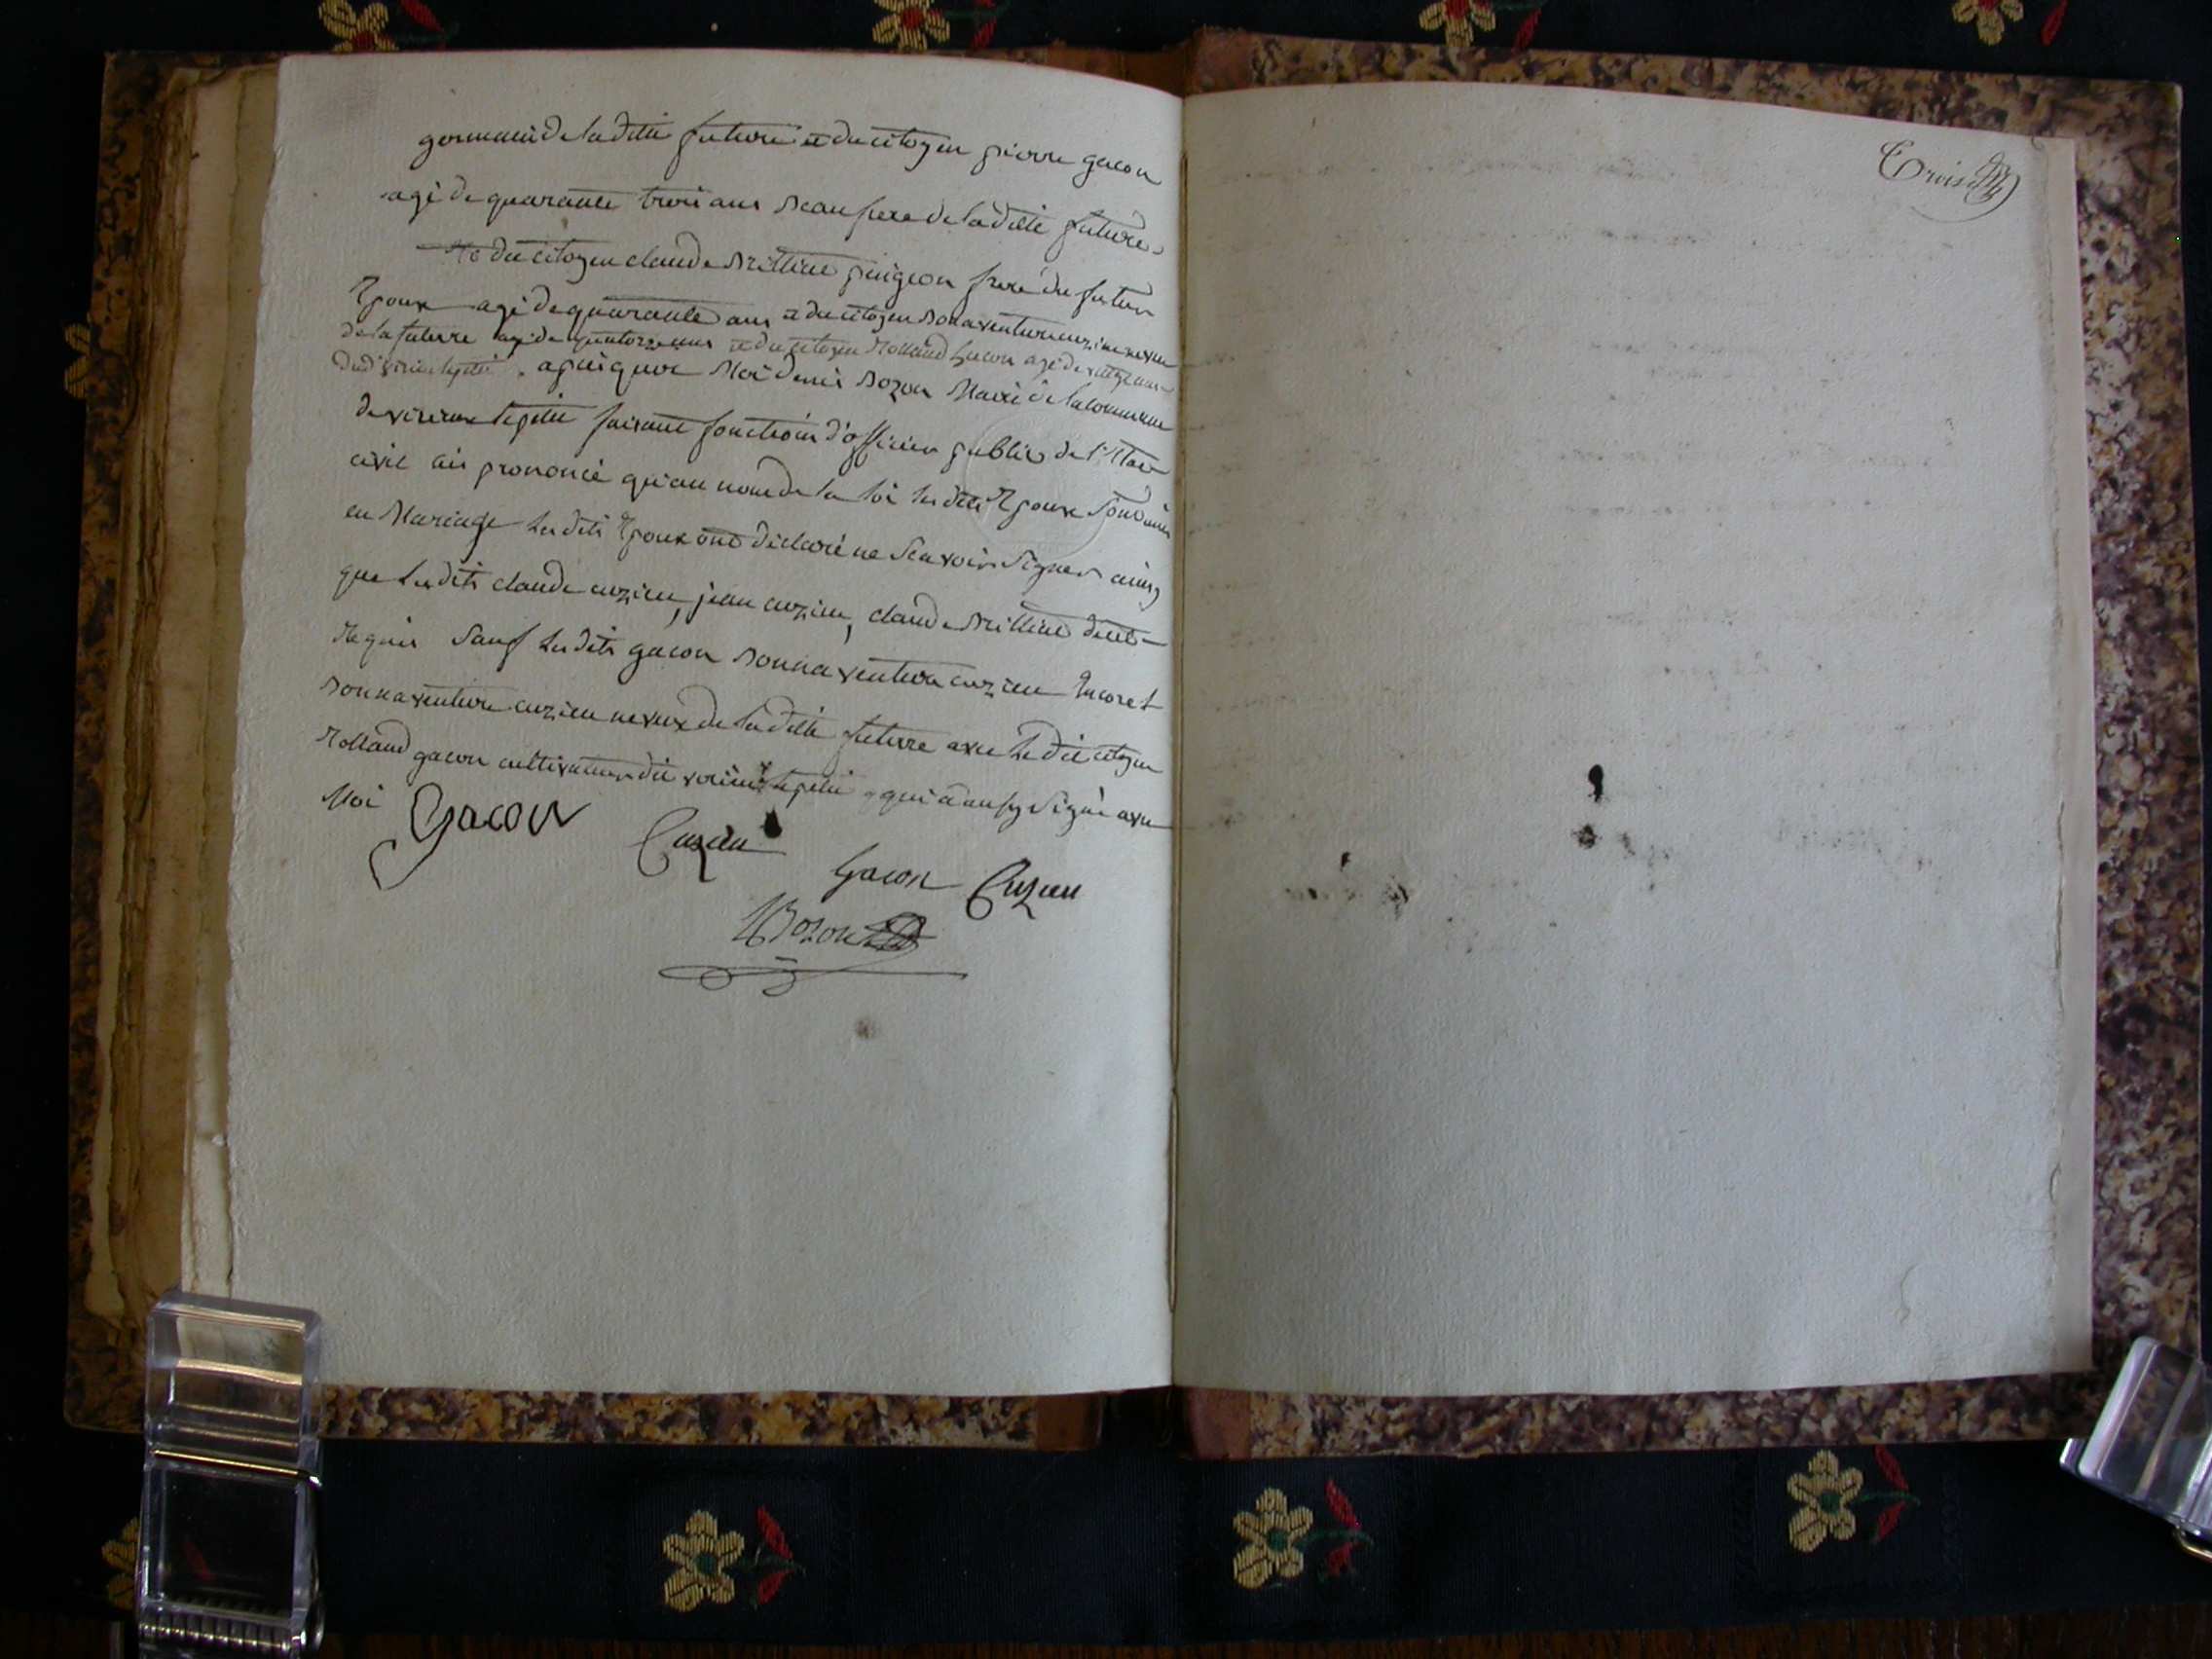 germain de la ditte future et du citoyen pierre gacon
agé de quarante trois ans Beaufrere de la ditte future
du citoyen claude Milliat pingeon frere du futur
Epoux agé de quarante ans et du citoyen Bonaventure cuzieu neveu
de la future agé de quatorze ans et du citoyen Rolland Gacon agé de
dud virieu le petit . apuis quoi Moi denis Bozon Maire de la commune
de virieux le petit faisant fonctions d'officier public de l'Etat
civil ais prononcé qu'au nom de la loi les dits Epoux sont unis
en Mariage les dits Epoux ont déclaré ne scavoir signer ainsy
que les dits claude cuzieu, jean cuzieu, claude Milliat
Requis sauf les dits gacon Bonnaventure cuzieu Encore
Bonnaventure cuzieu neveux de la ditte future avec le dit citoyen
Rolland gacon cultivateur dit virieux le petit qui a aussy signé avec
Moi Gacon
Cuzieu
Gacon Cuzieu
Bozon
Troisi